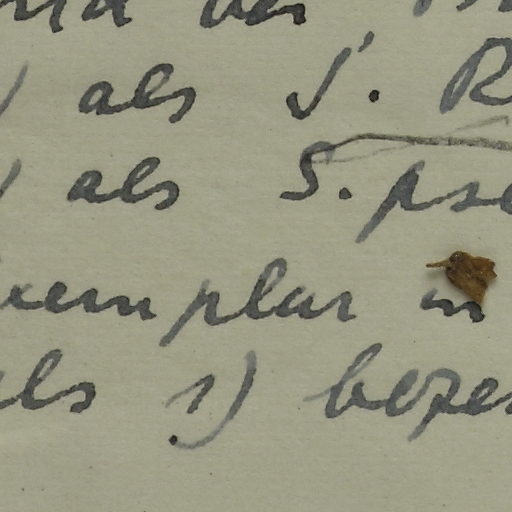 als S. R
als S. pse
xemplar in
als 1) bezei